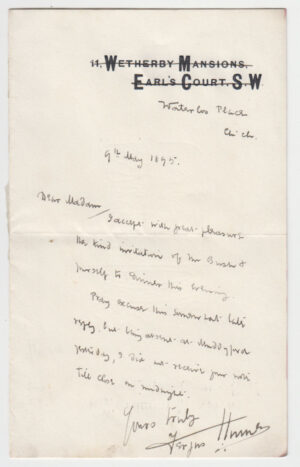 11, WETHERBY MANSIONS,
EARL'S COURT. S.W
Waterloo Place
9th May 1895.
Dear Madam/
I accept with great pleasure
the kind invitation of Mr
yourself to dinner this evening
Pray excuse this somewhat late
reply, but being absent at
yesterday, I did not receive your note
till close on midnight.
Yours truly
Fergus Hume